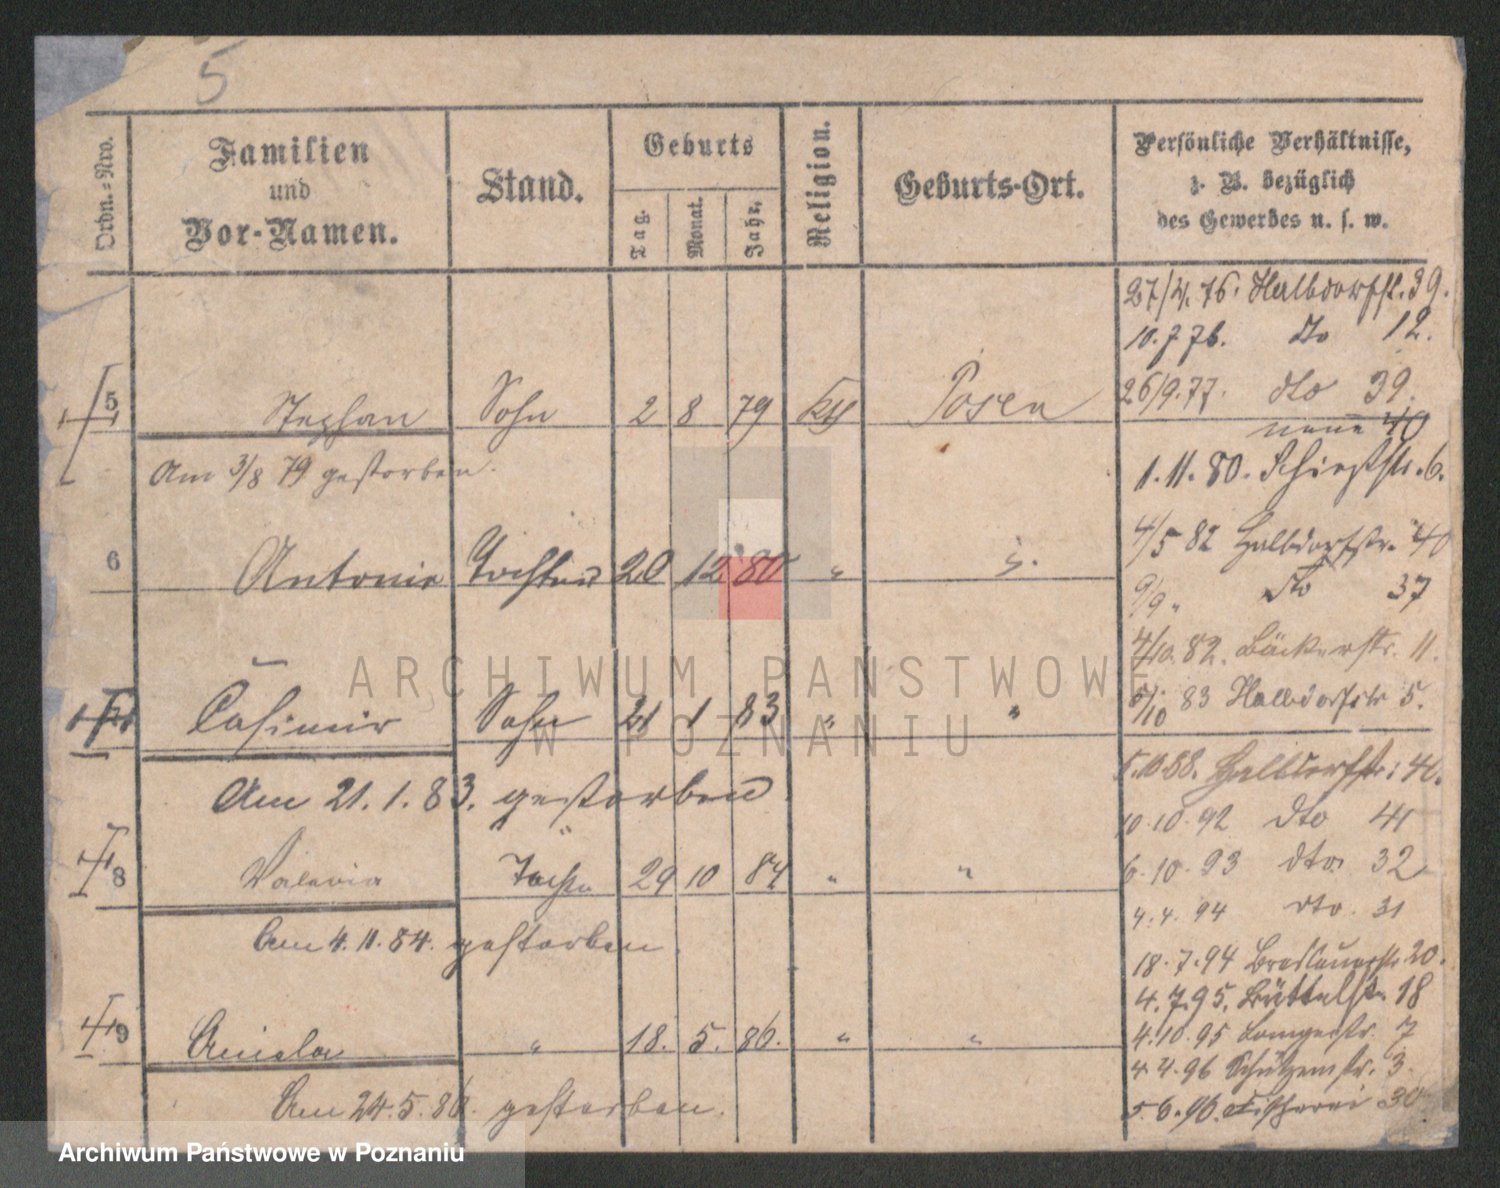 5
Ordn.=Nro.
Familien
und
Vor-Namen.
Stand.
Geburts
Tag.
Monat.
Jahr.
Religion.
Geburts-Ort.
Persönliche Verhältnisse,
z. B. bezüglich
des Gewerbes u. s. w.
27/4. 76. Halbdorfst. 39.
10. 7 76. dto 12.
26/9. 77. dto 39.
neue 40
1. 11. 80. Schießstr. 6.
4/5 82 Halbdorfstr. 40
9/9 " dto 37
4/10. 82. Bäckerstr. 11.
5/10 83 Halbdorfstr 5.
5. 10 88. Halbdorfstr: 40.
10. 10. 92 dto 41
6. 10. 93 dto 32
4. 4. 94 dto. 31
18. 7. 94 Breslauerstr 20.
4. 7. 95. Büttelstr. 18
4. 10. 95 Langestr. 7
4. 4. 96 Schützenstr. 3.
5. 6. 96. Fischerei 30
5 Stephan Sohn 2 8 79 Kth Posen
Am 3/8 79 gestorben.
6 Antonie Tochter 20 12 80 " "
Casimir Sohn 21 1 83 " "
Am 21. 1. 83. gestorben
8 Valeria Tochter 29 10 84 " "
Am 4. 11. 84. gestorben.
9 Aniela " 18. 5. 86. " "
Am 24. 5. 86. gestorben.
ARCHIWUM PAŃSTWOWE
W POZNANIU
Archiwum Państwowe w Poznaniu